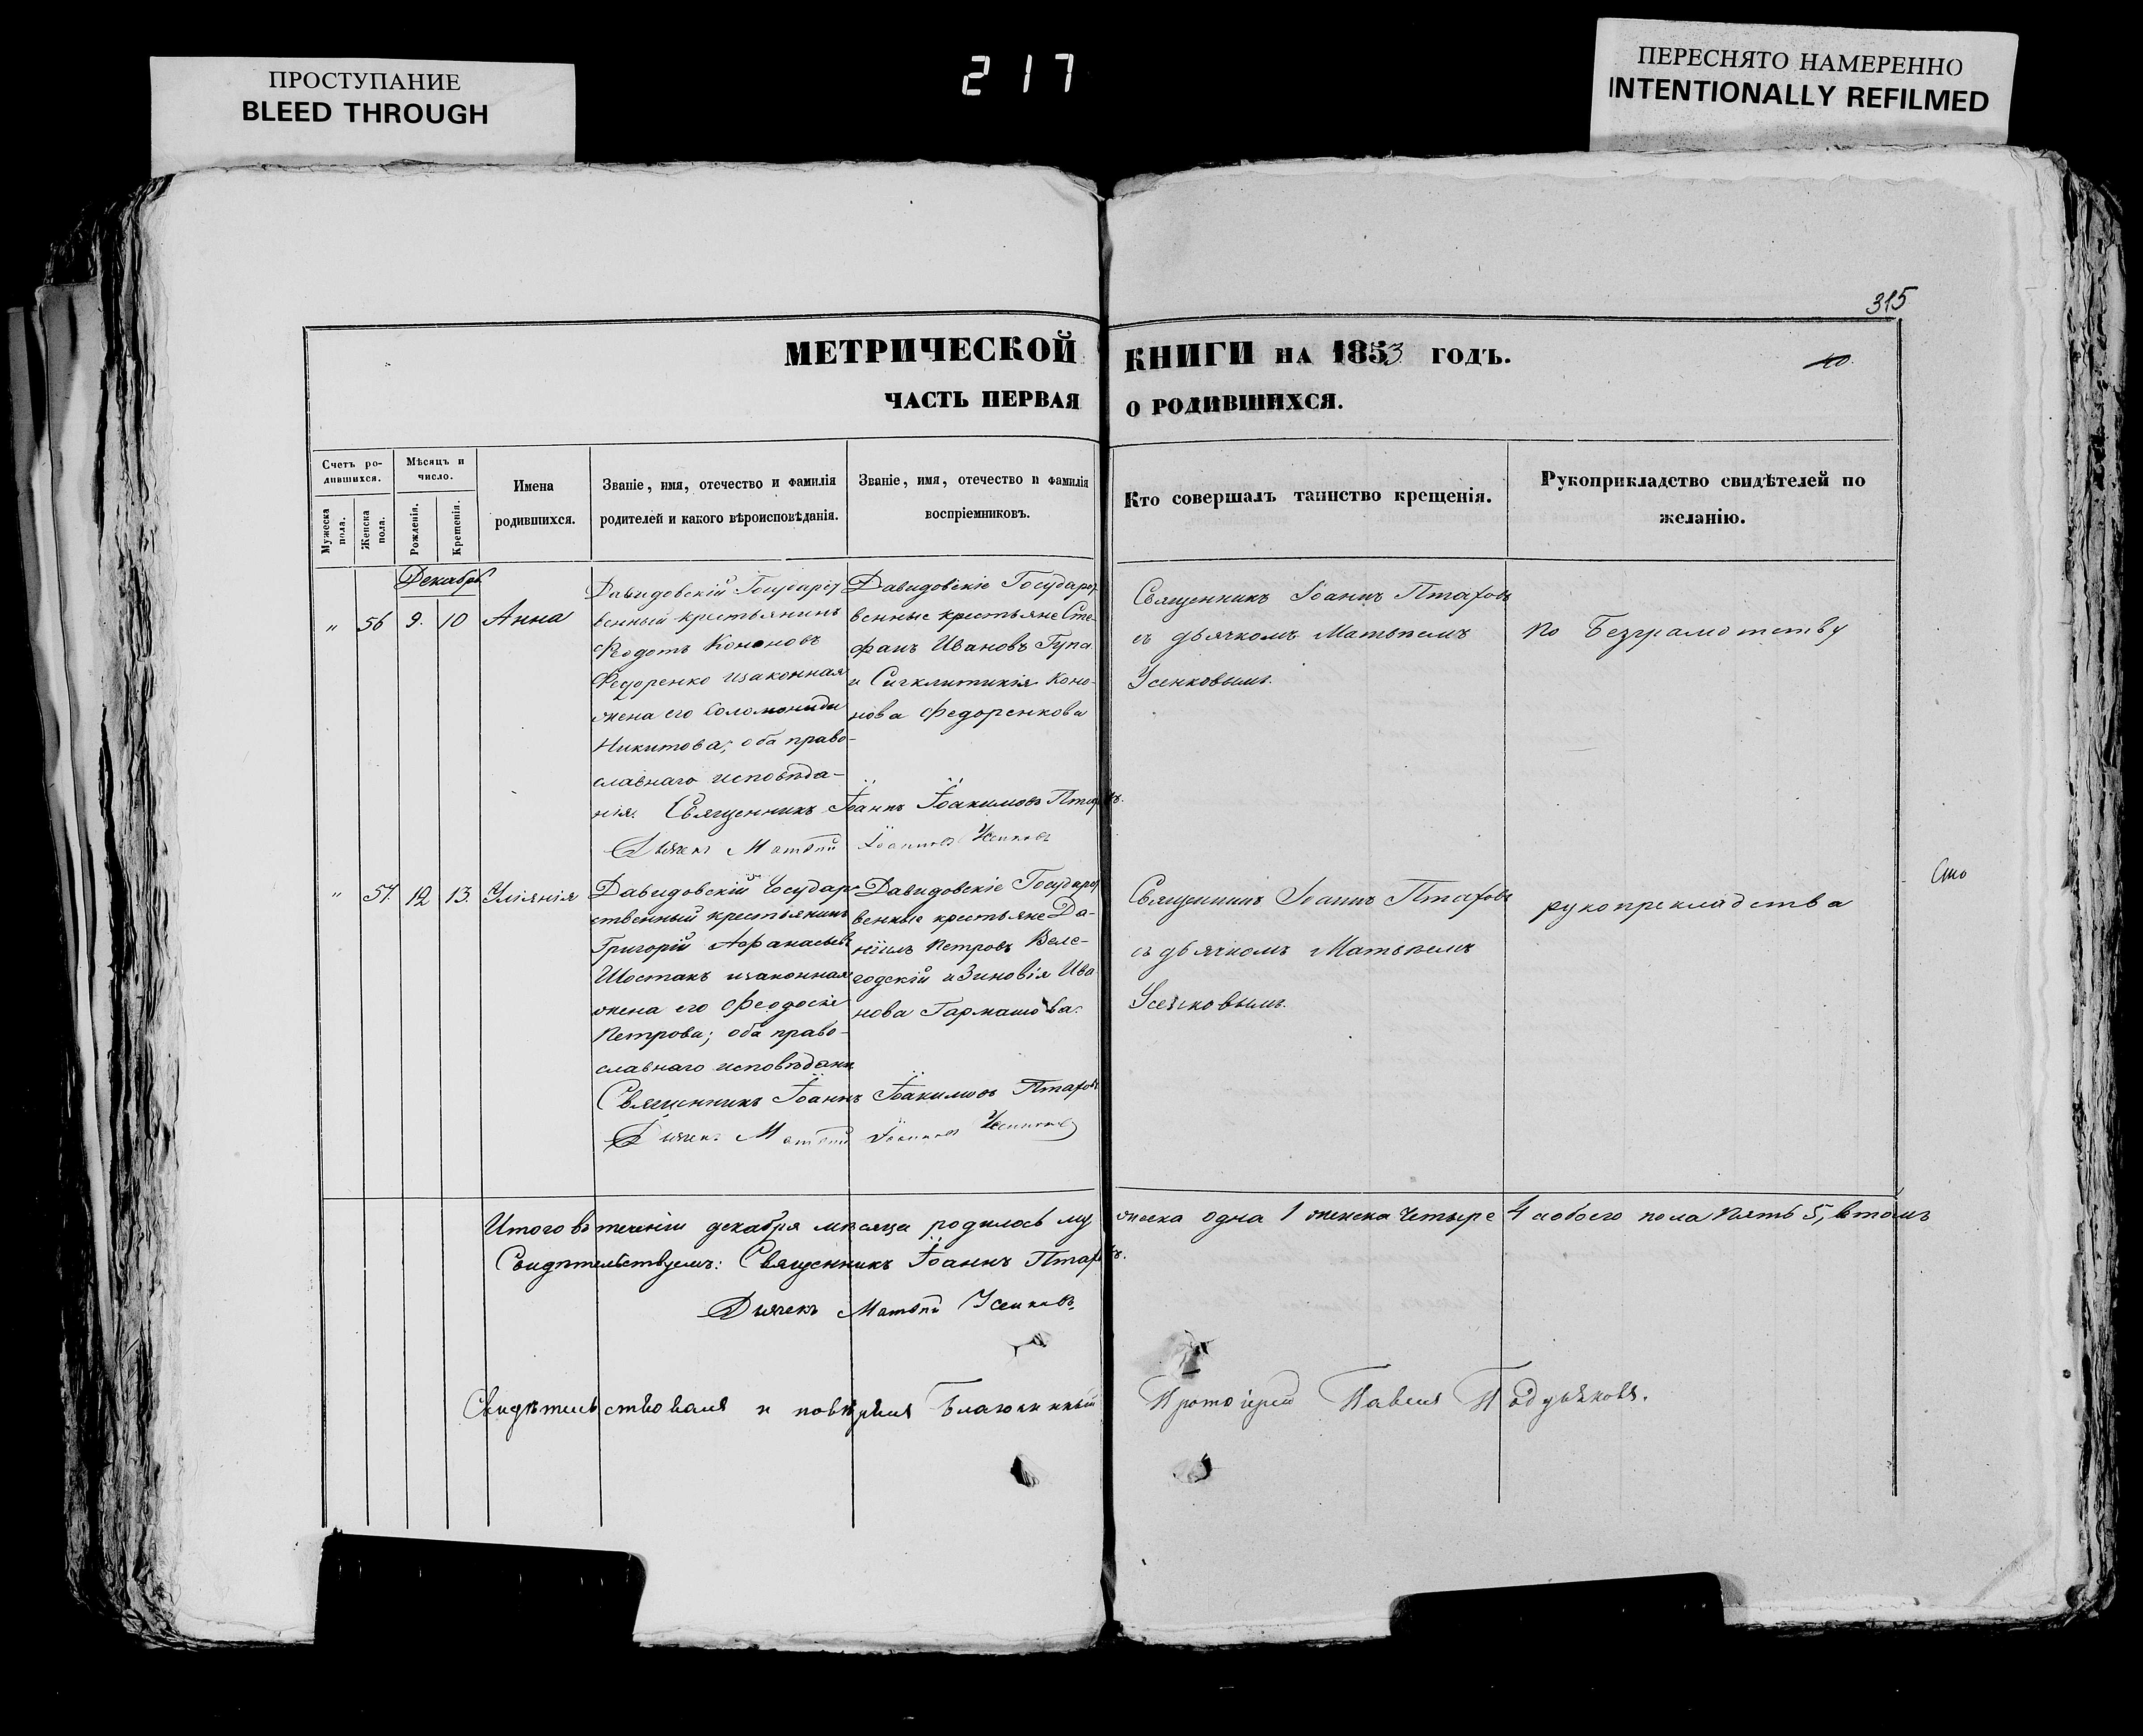 ПРОСТУПАНИЕ
BLEED THROUGH
217
ПЕРЕСНЯТО НАМЕРЕННО
INTENTIONALLY REFILMED
315
МЕТРИЧЕСКОЙ КНИГИ НА 1853 ГОДЪ.
ЧАСТЬ ПЕРВАЯ О РОДИВШИХСЯ.
Счетъ ро-
дившихся.
Мужеска
пола.
Женска
пола.
Мѣсяцъ и
число.
Рожденія.
Крещенія.
Имена
родившихся.
Званіе, имя, отечество и фамилія
родителей и какого вѣроисповѣданія.
Званіе, имя, отечество и фамилія
воспріемниковъ.
Кто совершалъ таинство крещенія.
Рукоприкладство свидѣтелей по
желанію.
Декабрь
" 56 9. 10 Анна
Давидовскій Государст
венный крестьянинъ
Федотъ Кононовъ
Федоренко изаконная
жена его Соломонида
Никитова; оба право-
славнаго исповѣда-
нія.
Давидовскіе Государст
венные крестьяне Сте-
фанъ Ивановъ Гупа
и Сигклитикія Коно-
нова Федоренкова
Священникъ Іоаннъ Птаховъ
съ дьячкомъ Матвѣемъ
Усенковымъ.
по Безграмотству
Священникъ Іоаннъ Іоакимовъ Птаховъ.
Дьячекъ Матвѣй Усенковъ
" 57. 12 13. Уліянія
Давидовскій Государ-
ственный крестьянинъ
Григорій Афанасьевъ
Шостакъ изаконная
жена его Феодосія
Петрова; оба право-
славнаго исповѣдани
Давидовскіе Государст
венные крестьяне Да-
ніилъ Петровъ Веле-
годскій и Зиновія Ива
нова Гармашова.
Священникъ Іоаннъ Птаховъ
съ дьячкомъ Матвѣемъ
Усенковымъ.
рукопрекладства
Священникъ Іоаннъ Іоакимовъ Птаховъ
Дьячекъ Матвѣй Усенковъ
Итого въ теченіи декабря мѣсяца родилось му жеска одна 1 женска Четыре 4 аобоего пола Пять 5, втомъ
Свидѣтельствуемъ: Священникъ Іоаннъ Птаховъ.
Дьячекъ Матвѣй Усенковъ.
Свидѣтельствовалъ и повѣрялъ Благочинный Протоіерей Павелъ